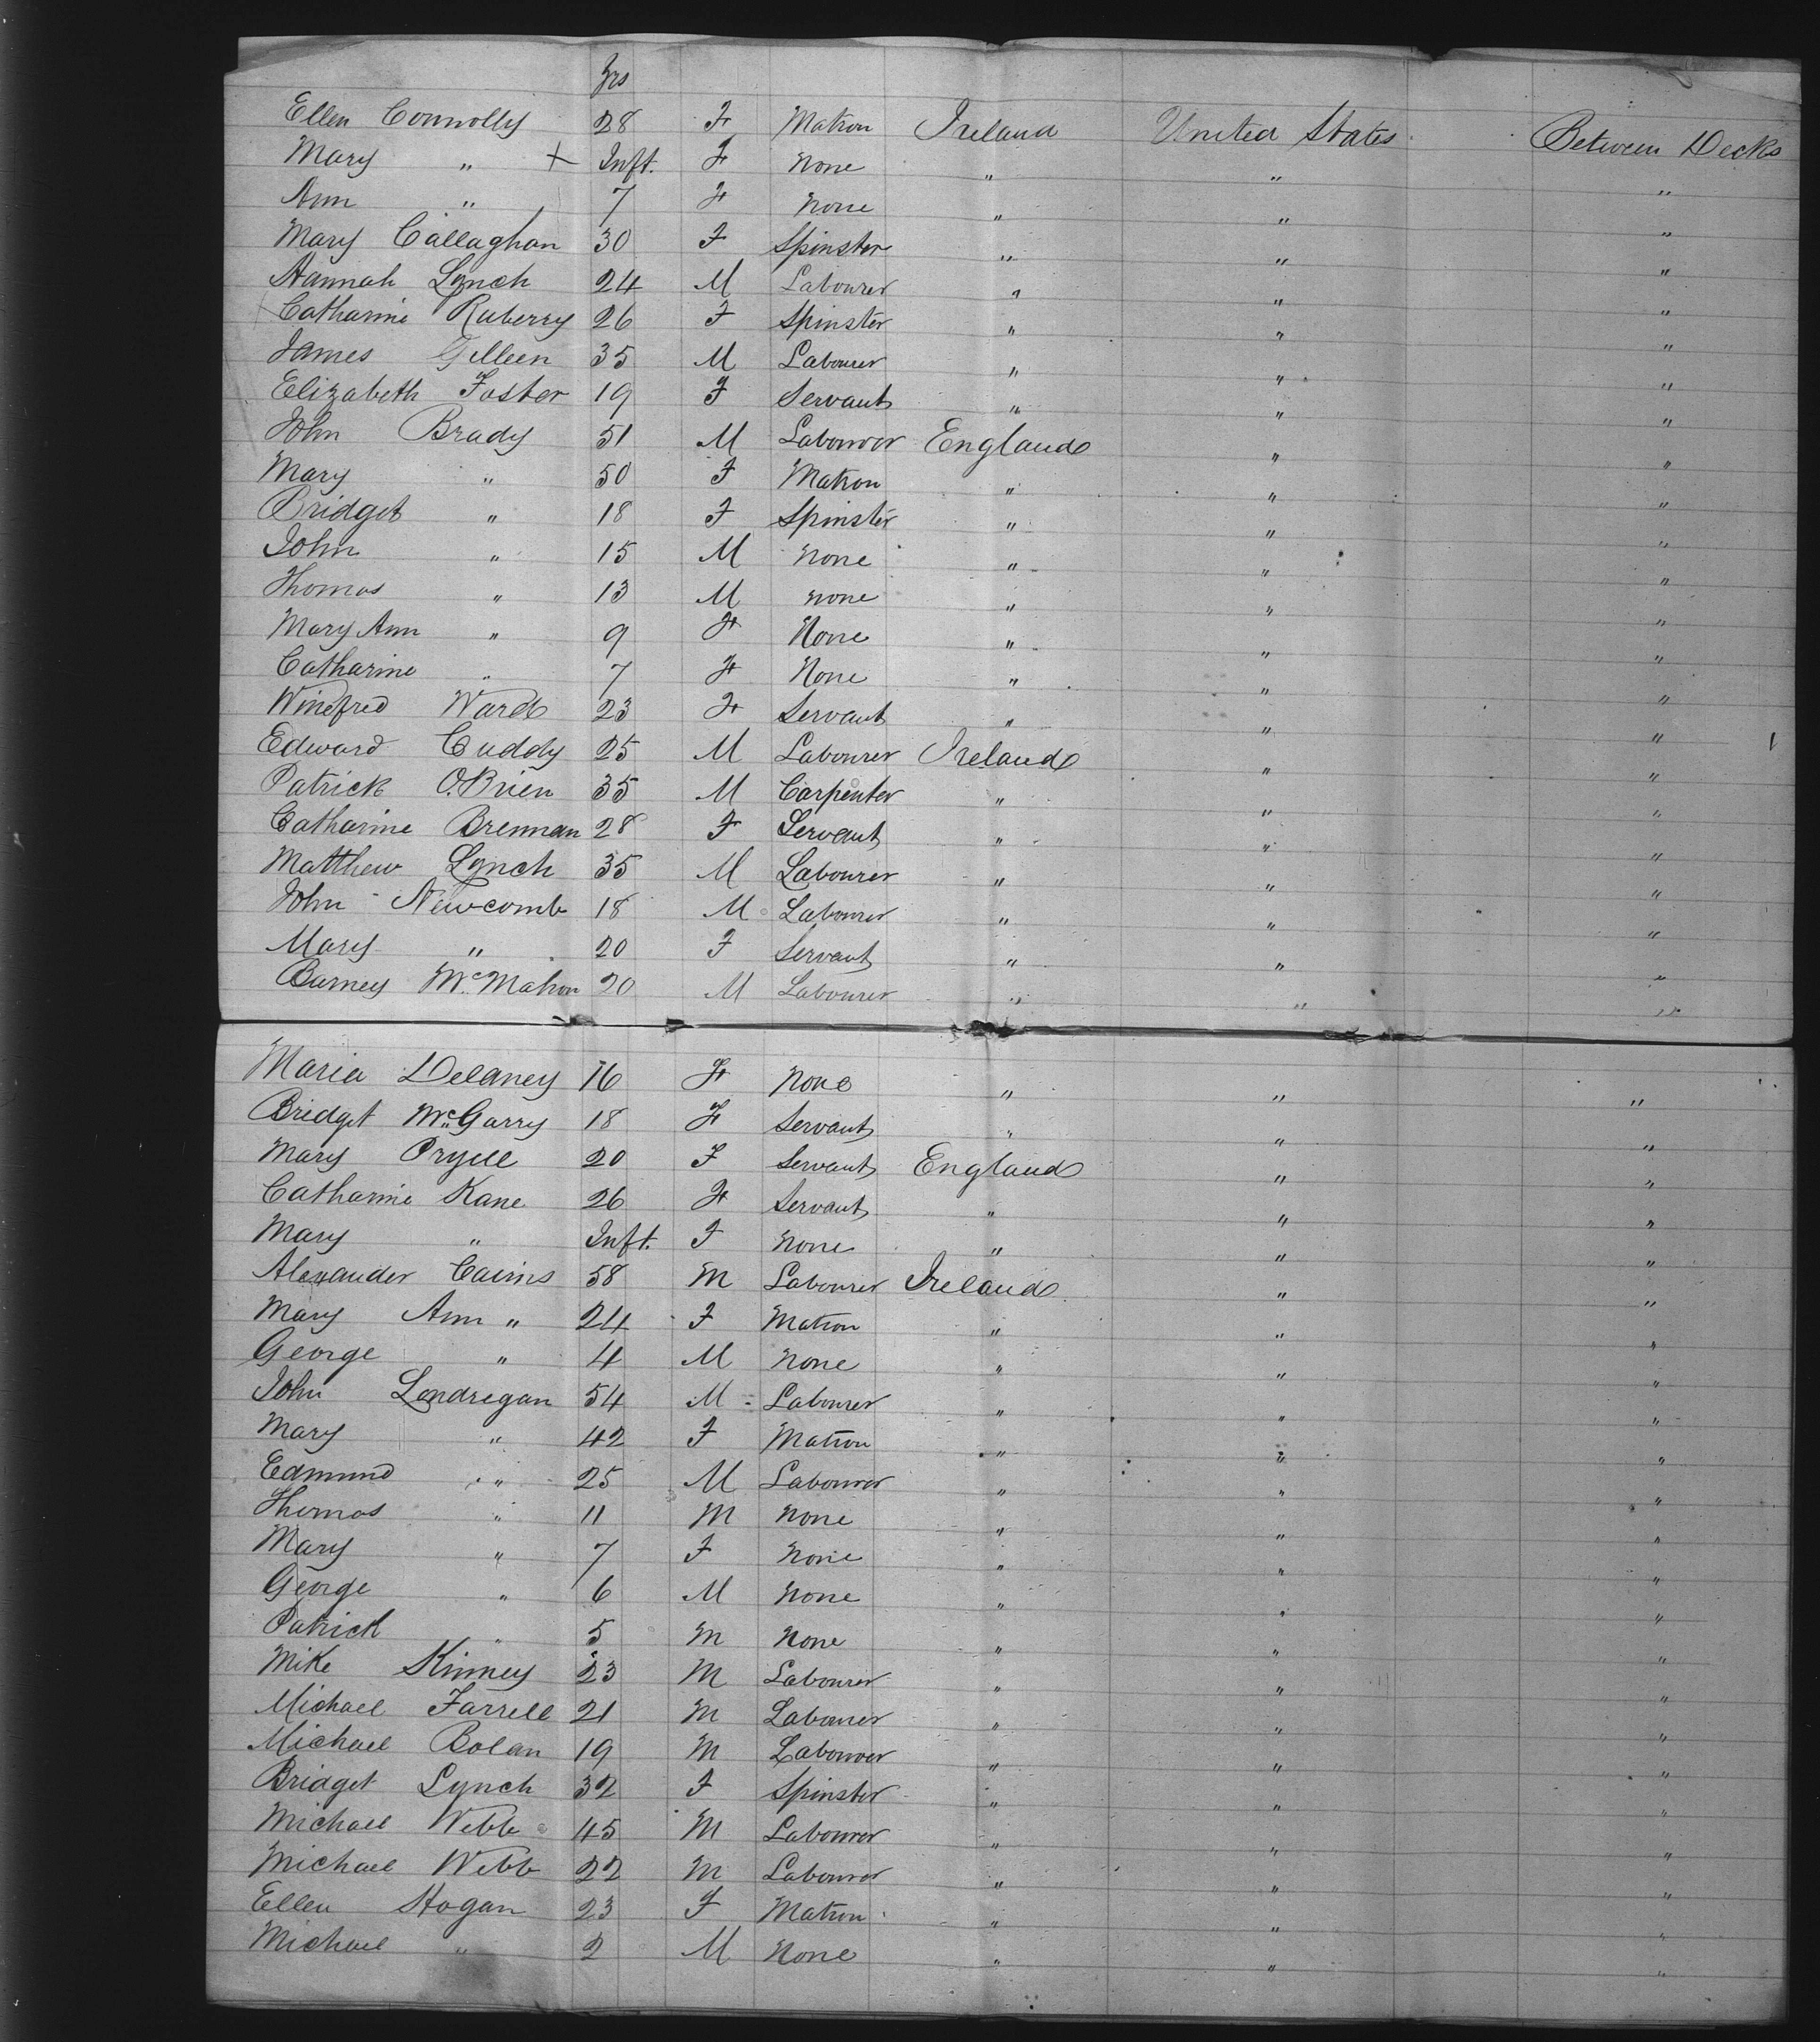 Yrs
Ellen Connolly 28 F Matron Ireland United States Between Decks
Mary " + Inft. F None " " "
Ann " 7 F None " " "
Mary Callaghan 30 F Spinster " " "
Hannah Lynch 24 M Labourer " " "
Catharine Ruberry 26 F Spinster " " "
James Gilleen 35 M Labourer " " "
Elizabeth Foster 19 F Servant " " "
John Brady 51 M Labourer England " "
Mary " 50 F Matron " " "
Bridget " 18 F Spinster " " "
John " 15 M None " " "
Thomas " 13 M none " " "
Mary Ann " 9 F None " " "
Catharine " 7 F None " " "
Winefred Ward 23 F Servant " " "
Edward Cuddy 25 M Labourer Ireland " "
Patrick O.Brien 35 M Carpenter " " "
Catharine Brennan 28 F Servant " " "
Matthew Lynch 35 M Labourer " " "
John Newcomb 18 M Labourer " " "
Mary " 20 F Servant " " "
Barney McMahon 20 M Labourer " " "
Maria Delaney 16 F None " " "
Bridget McGarry 18 F Servant " " "
Mary 20 F Servant England " "
Catharine Kane 26 F Servant " " "
Mary " Inft. F None " " "
Alexander Cairns 58 M Labourer Ireland " "
Mary Ann " 24 F Matron " " "
George " 4 M None " " "
John Londregan 54 M Labourer " " "
Mary " 42 F Matron " " "
Edmund " 25 M Labourer " " "
Thomas " 11 M None " " "
Mary " 7 F None " " "
George " 6 M None " " "
Patrick " 5 M None " " "
Mike Kinney 23 M Labourer " " "
Michael Farrell 21 M Labourer " " "
Michael Bolan 19 M Labourer " " "
Bridget Lynch 32 F Spinster " " "
Michael Webb 45 M Labourer " " "
Michael Webb 22 M Labourer " " "
Ellen Hogan 23 F Matron " " "
Michael " 2 M None " " "